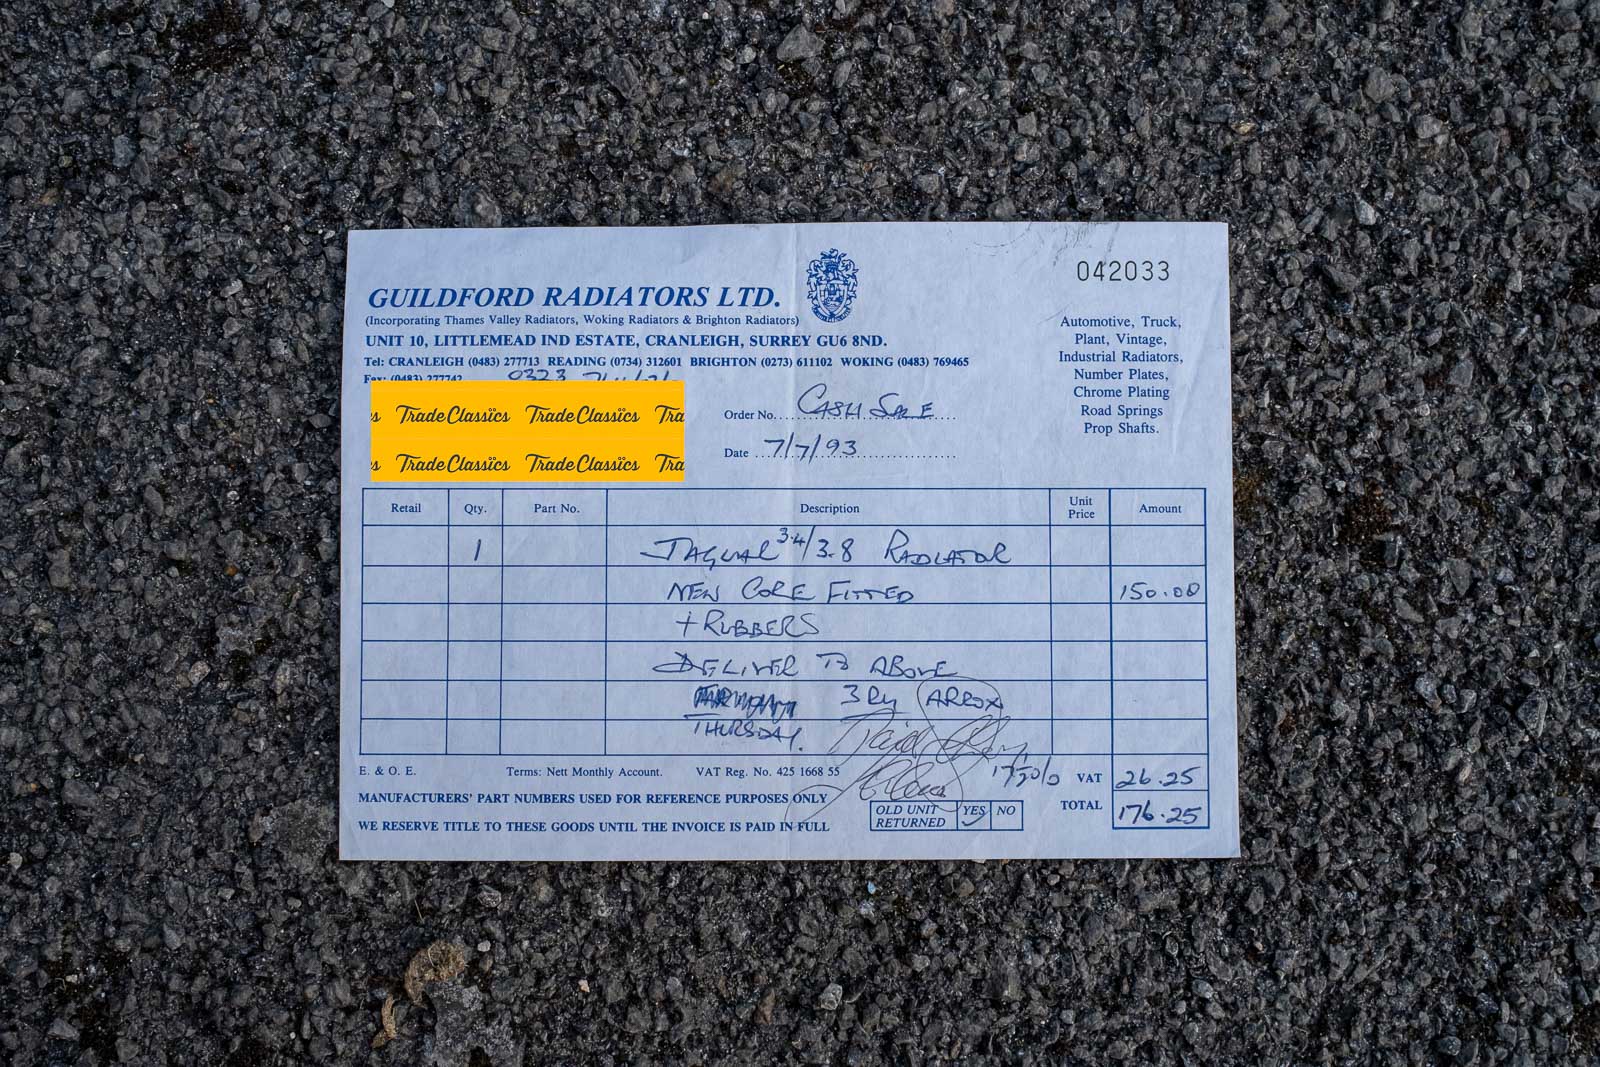 042033
GUILDFORD RADIATORS LTD.
(Incorporating Thames Valley Radiators, Woking Radiators & Brighton Radiators)
UNIT 10, LITTLEMEAD IND ESTATE, CRANLEIGH, SURREY GU6 8ND.
Tel: CRANLEIGH (0483) 277713 READING (0734) 312601 BRIGHTON (0273) 611102 WOKING (0483) 769465
Fax: (0483) 277742 0323
Automotive, Truck,
Plant, Vintage,
Industrial Radiators,
Number Plates,
Chrome Plating
Road Springs
Prop Shafts.
s TradeClassics TradeClassics Tra
s TradeClassics TradeClassics Tra
Order No. CASH SALE
Date 7/7/93
Retail Qty. Part No. Description Unit Price Amount
1 JAGUAR 3.4/3.8 RADIATOR
NEW CORE FITTED 150.00
+ RUBBERS
DELIVER TO ABOVE
3 ARROX
THURSDAY.
E. & O. E. Terms: Nett Monthly Account. VAT Reg. No. 425 1668 55 VAT 26.25
MANUFACTURERS' PART NUMBERS USED FOR REFERENCE PURPOSES ONLY
OLD UNIT RETURNED YES NO TOTAL 176.25
WE RESERVE TITLE TO THESE GOODS UNTIL THE INVOICE IS PAID IN FULL